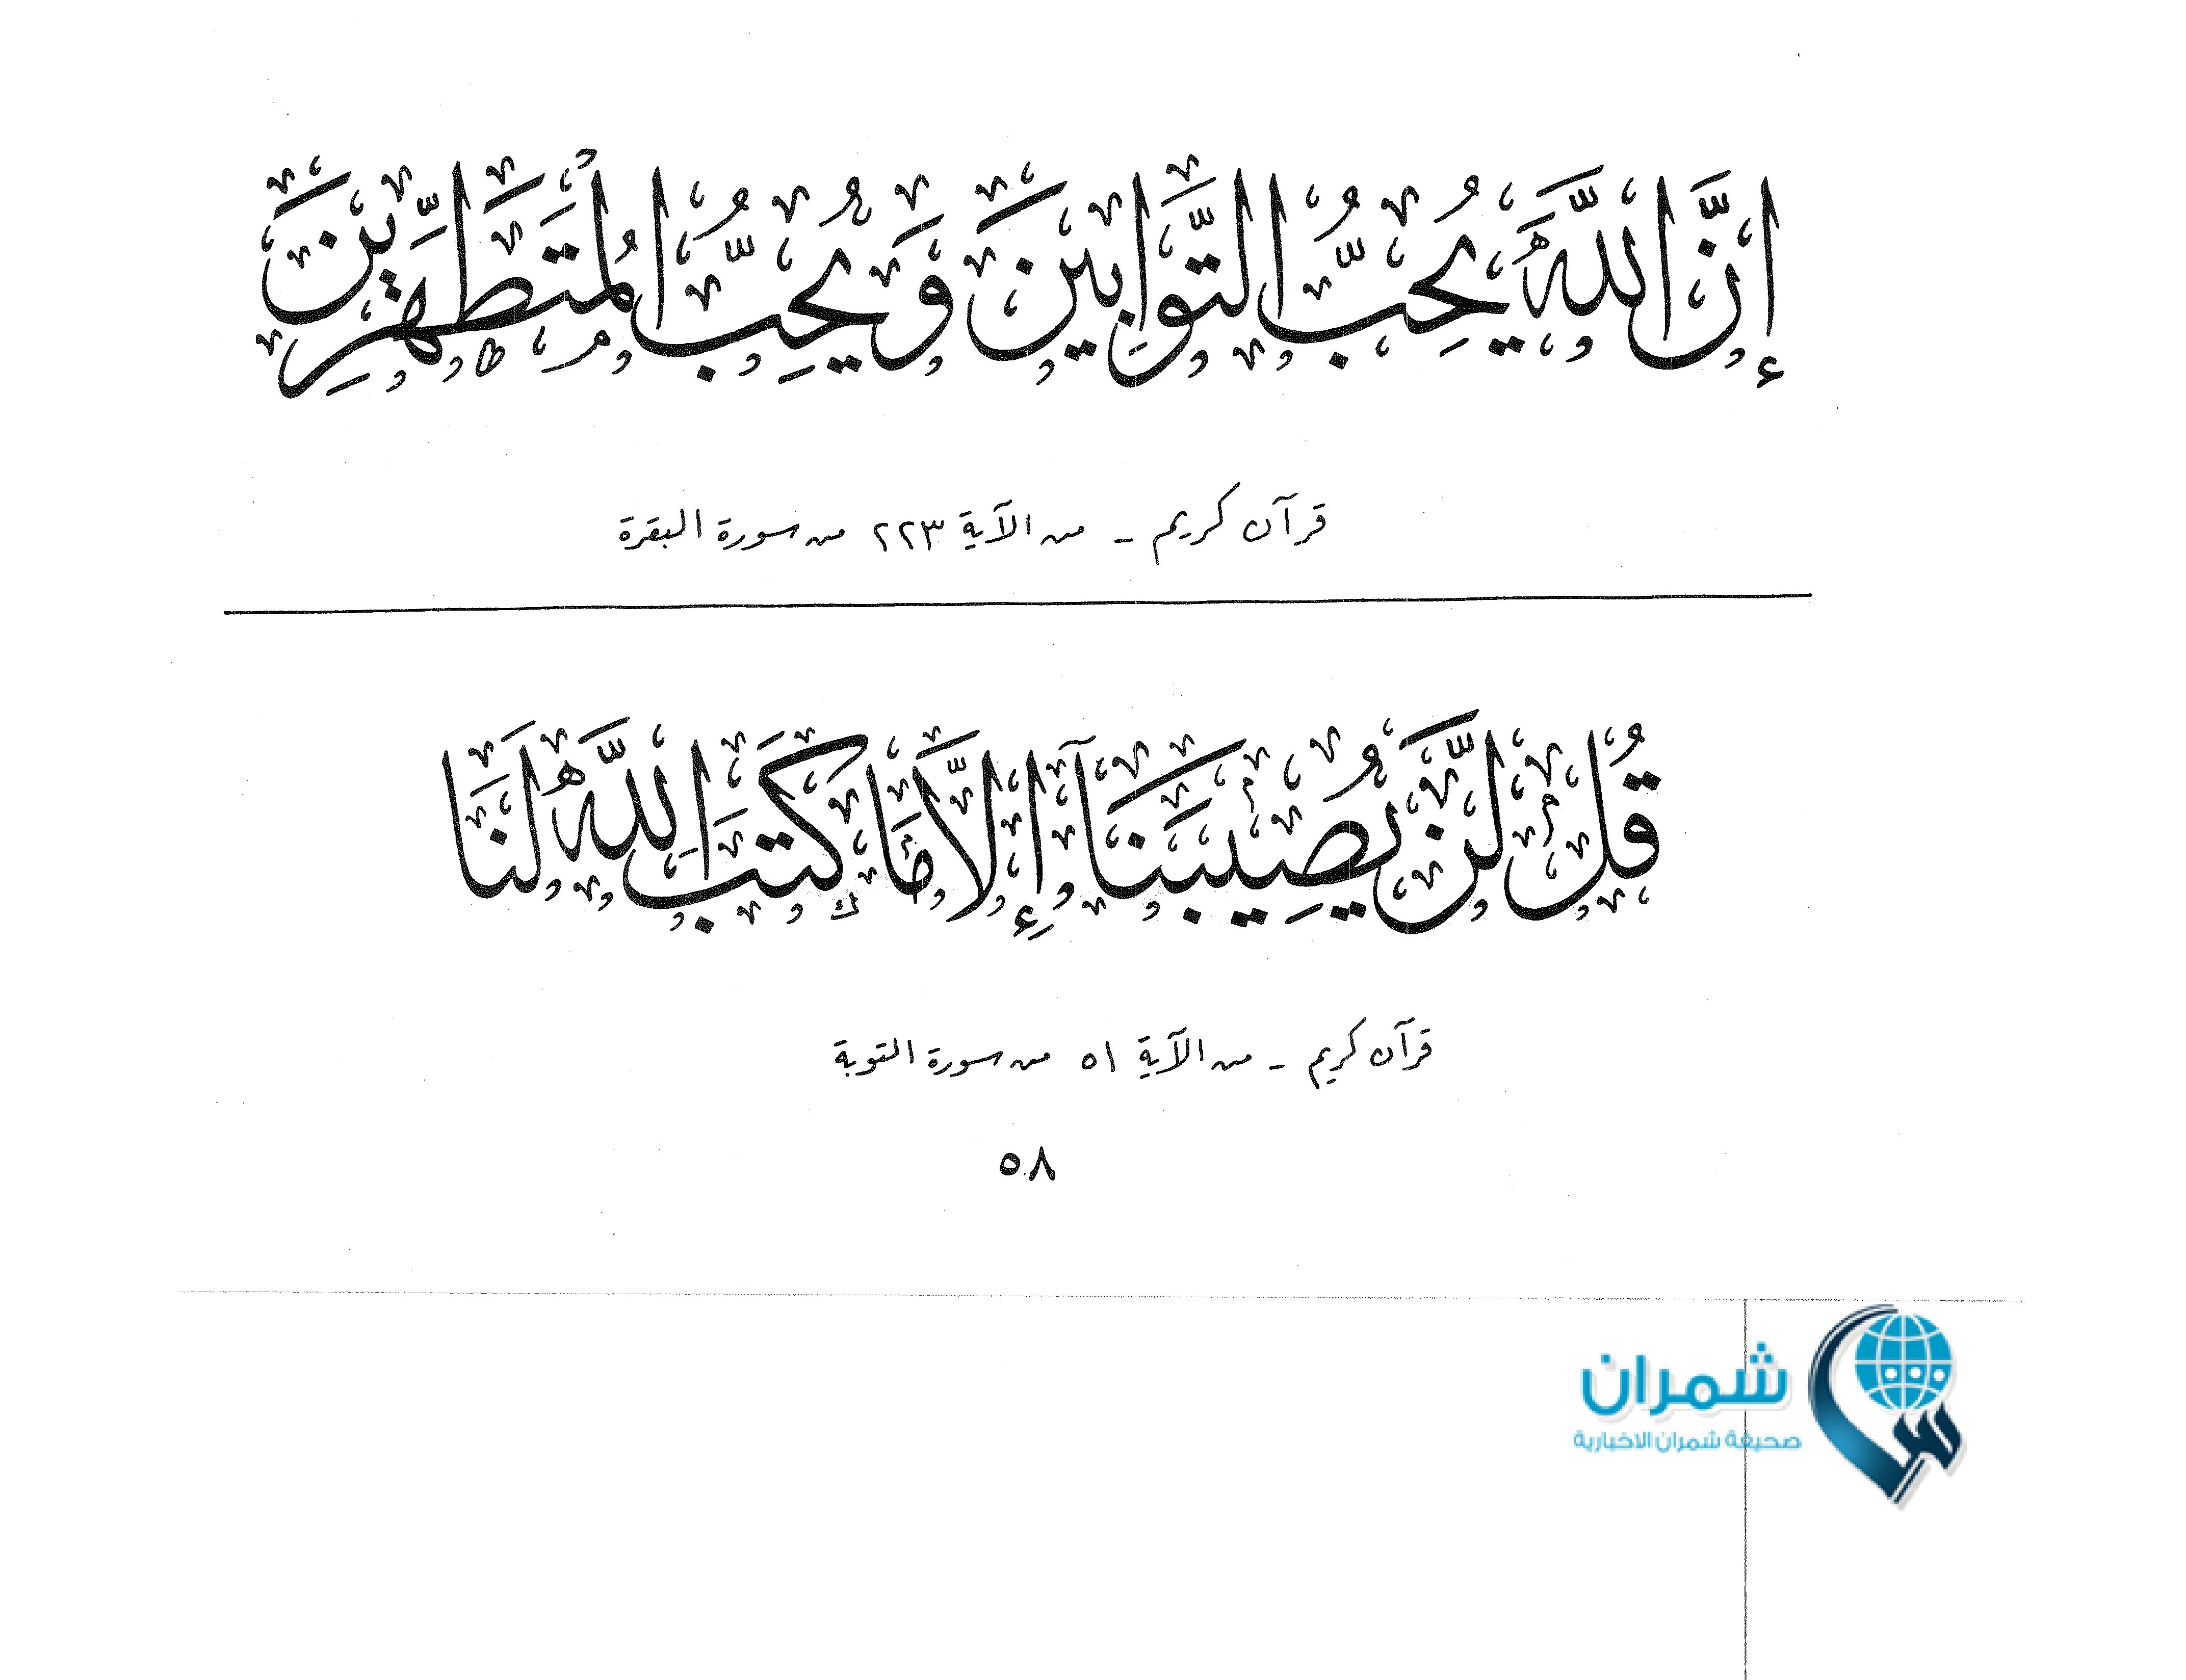 إِنَّ اللَّهَ يُحِبُّ التَّوَّابِينَ وَيُحِبُّ الْمُتَطَهِّرِينَ
قرآن كريم - من الآية ٢٢٣ من سورة البقرة
قُل لَّن يُصِيبَنَآ إِلَّا مَا كَتَبَ اللَّهُ لَنَا
قرآن كريم - من الآية ٥١ من سورة التوبة
٥٨
شمران
صحيفة شمران الاخبارية